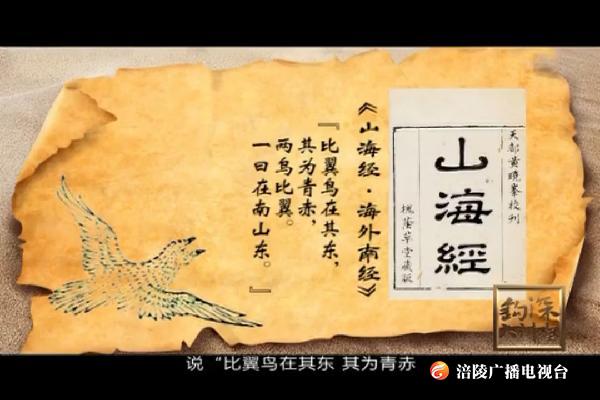 《山海经·海外南经》
『比翼鸟在其东，
其为青赤，
两鸟比翼。
一曰在南山东。』
天都黄曉峯校刊
山海經
槐蔭草堂藏板
钩深
说“比翼鸟在其东 其为青赤
涪陵广播电视台